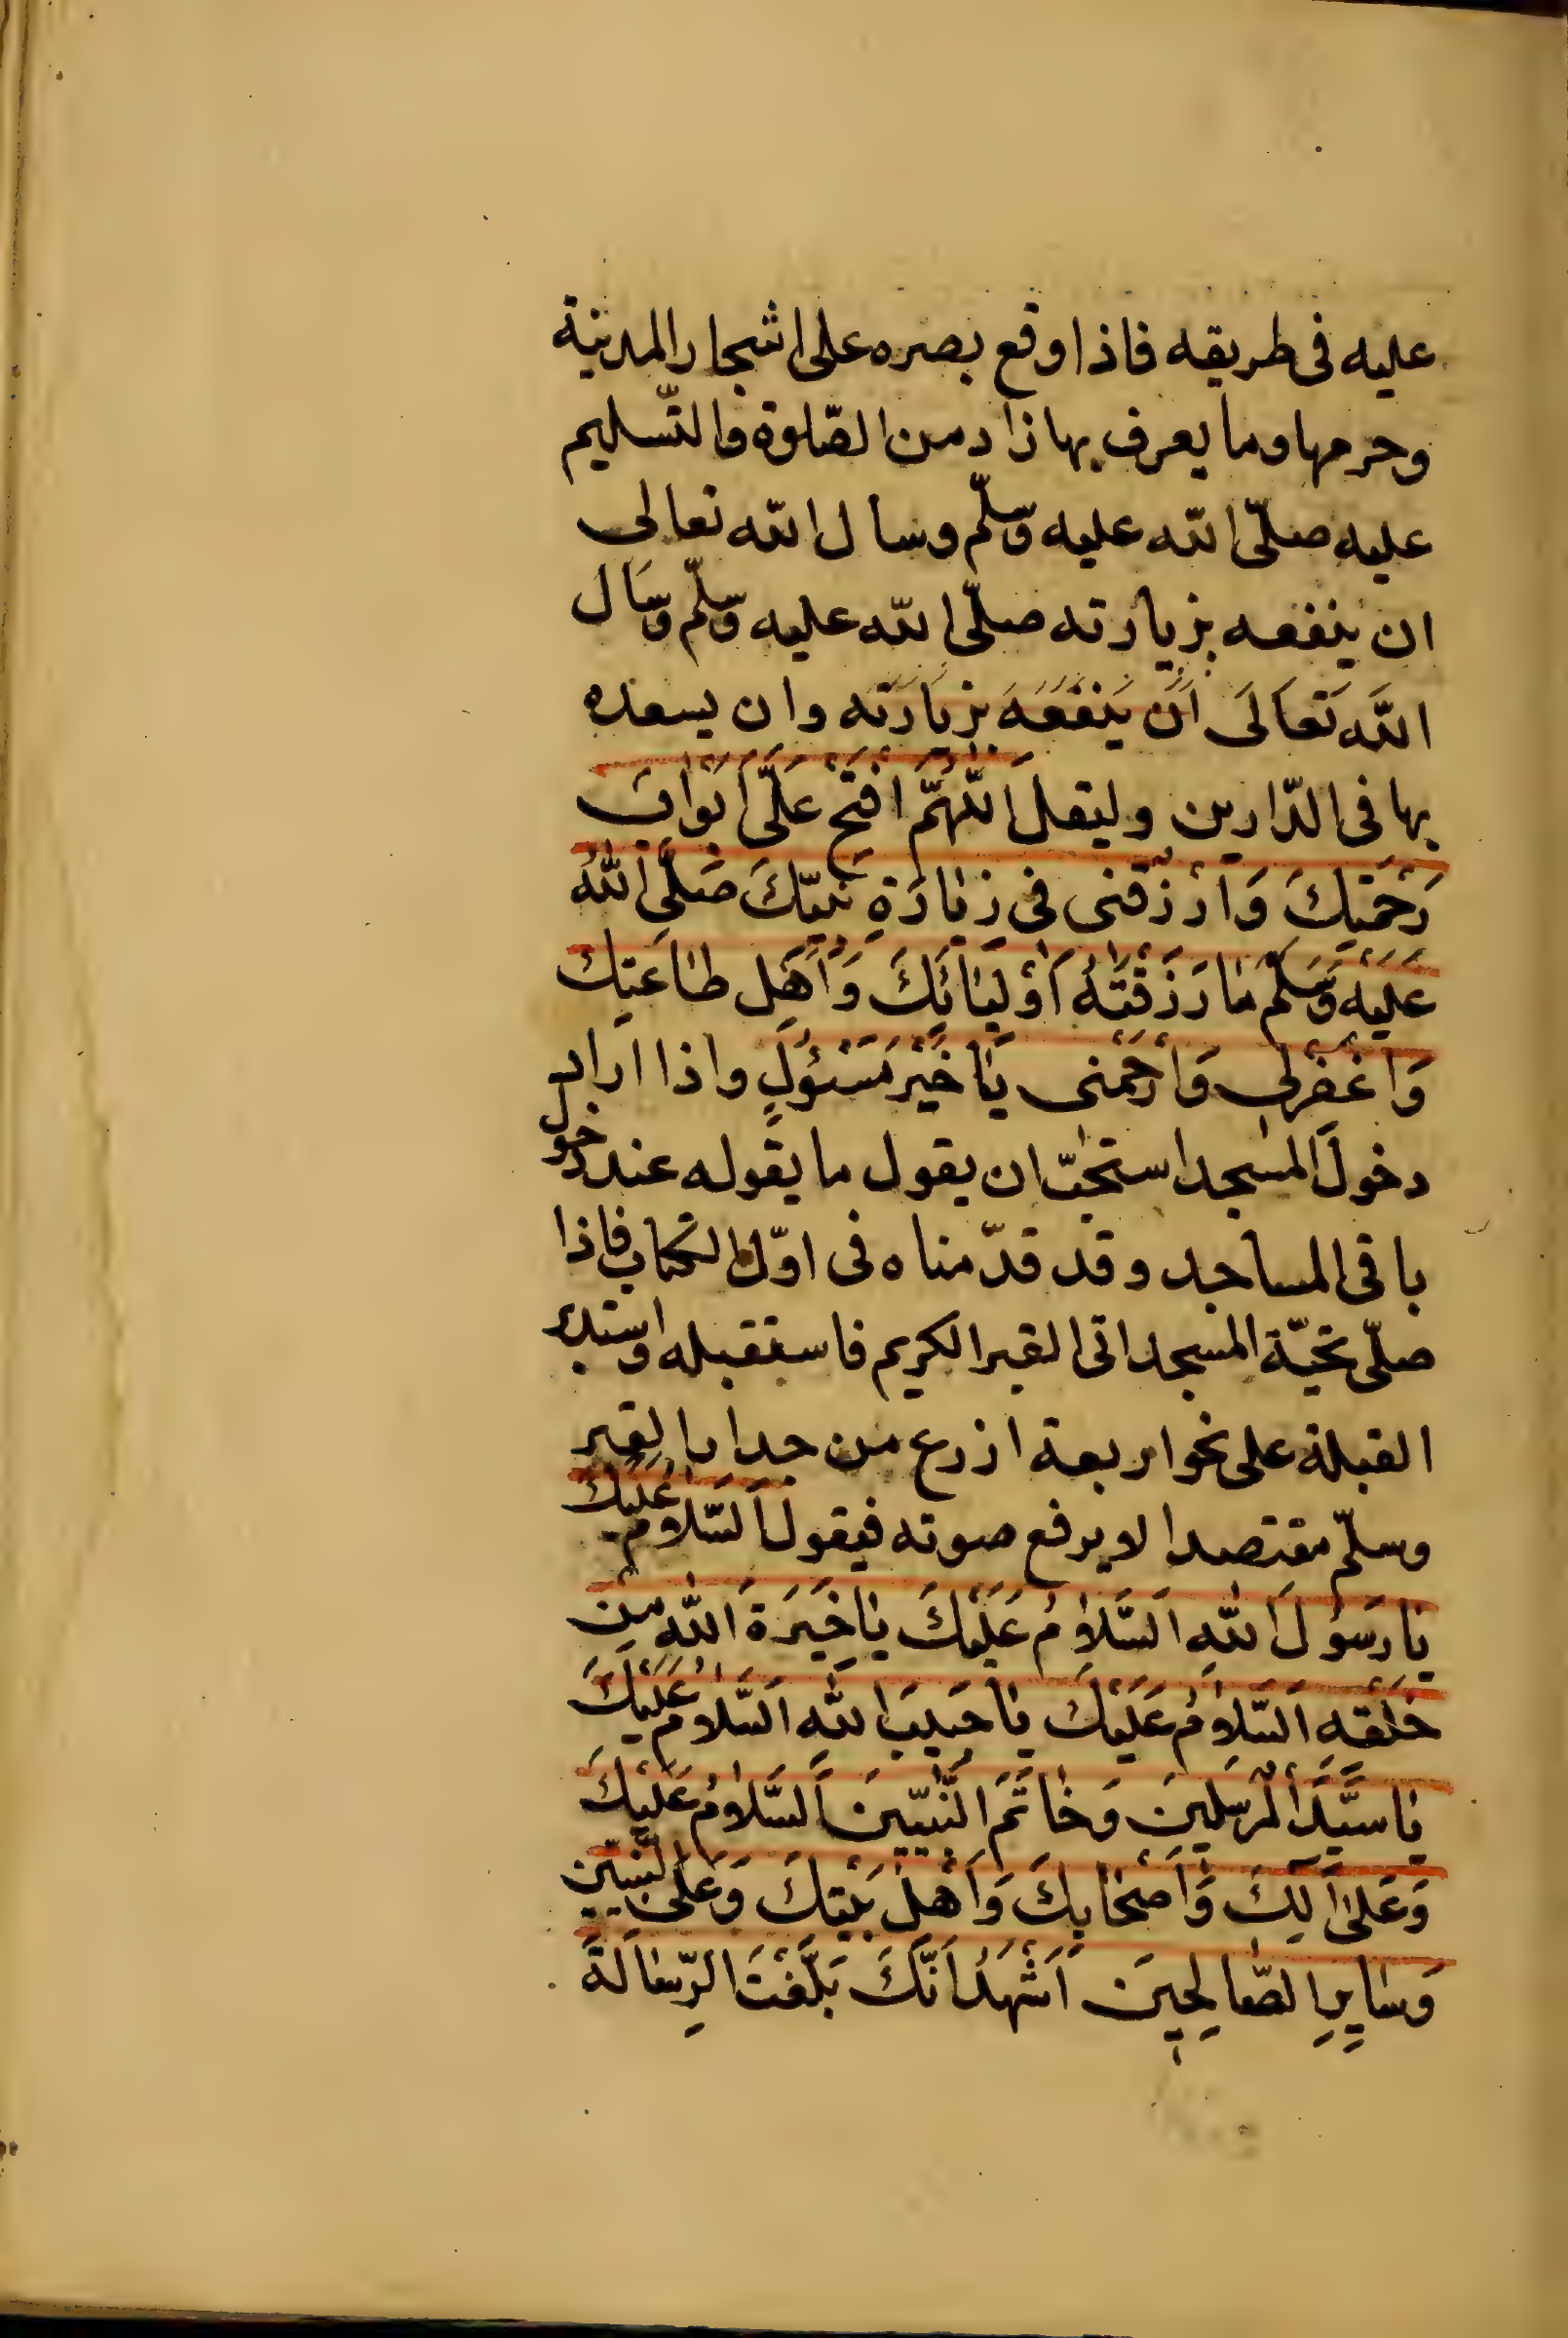 عليه فى طريقه فاذا وقع بصره على اشجار المدينة
وحرمها وما يعرف بها زاد من الصّلوة والتّسليم
عليه صلّى الله عليه وسلّم وسأل الله تعالى
ان ينفعه بزيارته صلّى الله عليه وسلّم وسَأل
اللَّه تَعَالَى اَن يَنفَعَهَ بِزِيَارَتَه وان يسعده
بها فى الدّارين وليقل اَللّهُمَّ افْتَحْ عَلَىَّ اَبْوَابَ
رَحْمَتِكَ وَارْزُقْنى فى زِيَارَةِ نَبِيّكَ صَلَّى اللهُ
عَلَيْهِ وَسَلَّم مَا رَزَقْتَهُ اَوْلِيَائَكَ وَاَهْل طَاعَتِكَ
وَاغْفِرْلى وَارْحَمْنى يَا خَيْر مَسْئُولٍ واذا اراد
دخول المسجد استحبّ ان يقول ما يقوله عند دخول
باقى المساجد وقد قدّمناه فى اوّل الكتاب فاذا
صلّى تحيّة المسجد اتى القبر الكريم فاستقبله واستدبر
القبلة على نحو اربعة اذرع من جدار القبر
وسلّم مقتصدا لا يرفع صوته فيقول اَلسَّلَامُ عَلَيْكَ
يَا رَسُولَ اللهِ اَلسَّلَامُ عَلَيْكَ يَا خِيَرَةَ اللهِ مِن
خَلْقه اَلسَّلَامُ عَلَيْكَ يَا حَبِيبَ اللهِ اَلسَّلَامُ عَلَيْكَ
يَا سَيَّدَ الْمُرْسَلِينَ وَخَاتَمَ النَّبِيّينَ اَلسَّلَامُ عَلَيْكَ
وَعَلى اَلِكَ وَاَصْحَابِكَ وَاَهْلِ بَيْتِكَ وَعَلَى النَّبِيّين
وَسَايِرِ الصَّالِحِينَ اَشْهَدُ اَنَّكَ بَلَّغْتَ الرِّسَالَةَ